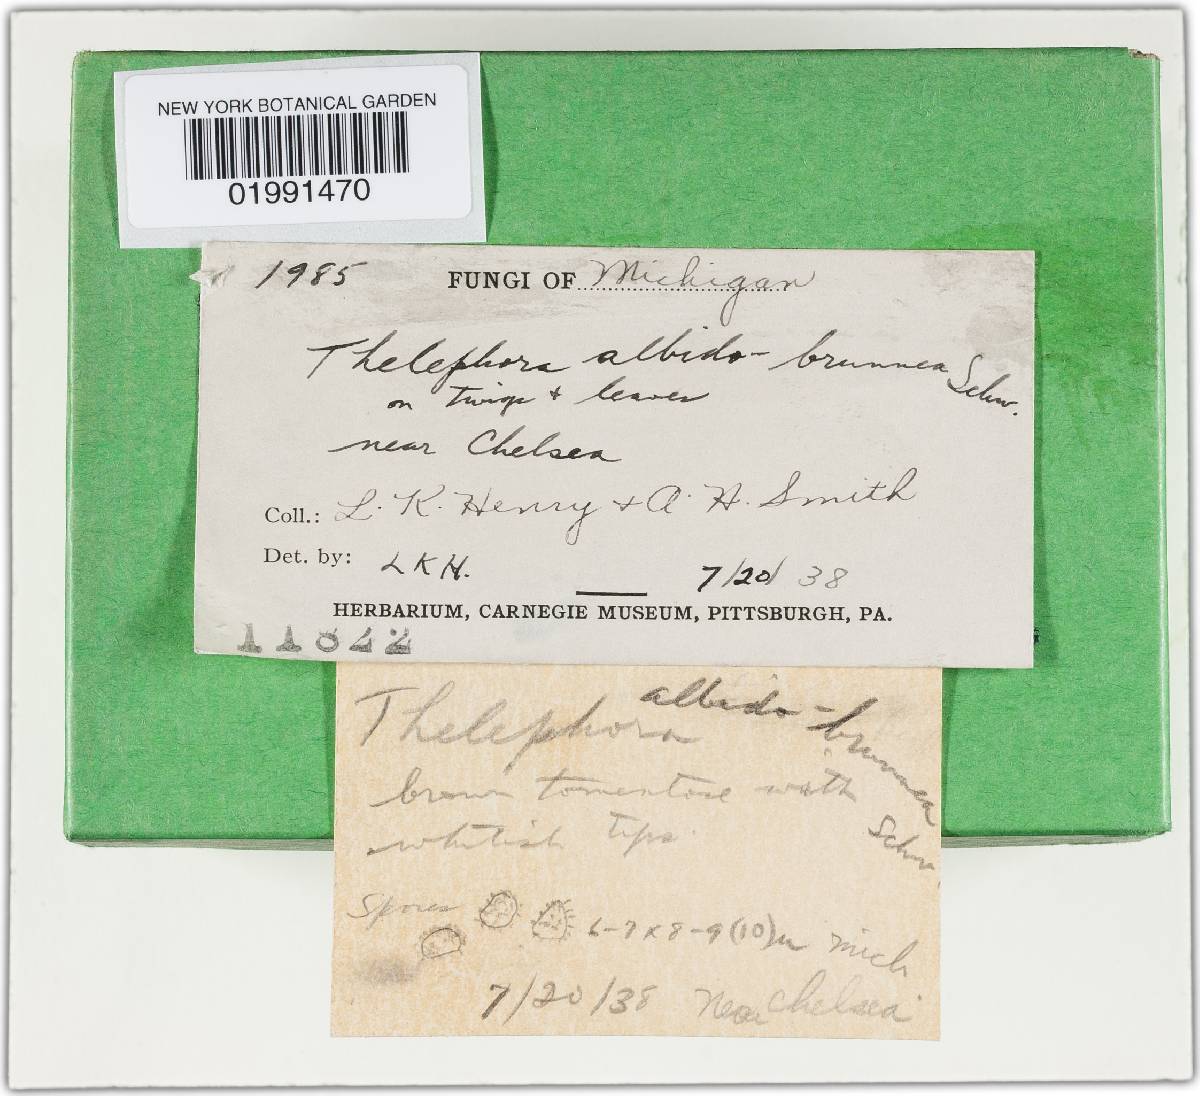 NEW YORK BOTANICAL GARDEN
01991470
1985 FUNGI OF Michigan
Thelephora albido-brunnea Schw.
on twigs + leaves
near Chelsea
Coll.: L. K. Henry + A. H. Smith
Det. by: LKH. 7/20/38
HERBARIUM, CARNEGIE MUSEUM, PITTSBURGH, PA.
11822
Thelephora albido-brunnea Schw.
brown tomentose with
whitish tips.
Spores 6-7 x 8-9 (10) u Mich
7/20/38 Near Chelsea